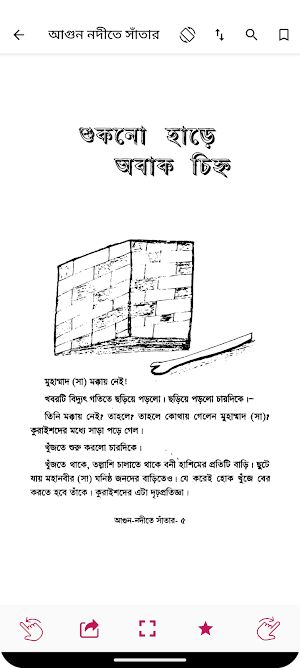 আগুন নদীতে সাঁতার
শুকনো হাড়ে
অবাক চিহ্ন
মুহাম্মাদ (সা) মক্কায় নেই!
খবরটি বিদ্যুৎ গতিতে ছড়িয়ে পড়লো। ছড়িয়ে পড়লো চারদিকে।–
তিনি মক্কায় নেই? তাহলে? তাহলে কোথায় গেলেন মুহাম্মাদ (সা)?
কুরাইশদের মধ্যে সাড়া পড়ে গেল।
খুঁজতে শুরু করলো চারদিকে।
খুঁজতে থাকে, তল্লাশি চালাতে থাকে বনী হাশিমের প্রতিটি বাড়ি। ছুটে
যায় মহানবীর (সা) ঘনিষ্ঠ জনদের বাড়িতেও। যে করেই হোক খুঁজে বের
করতে হবে তাঁকে। কুরাইশদের এটা দৃঢ়প্রতিজ্ঞা।
আগুন-নদীতে সাঁতার- ৫